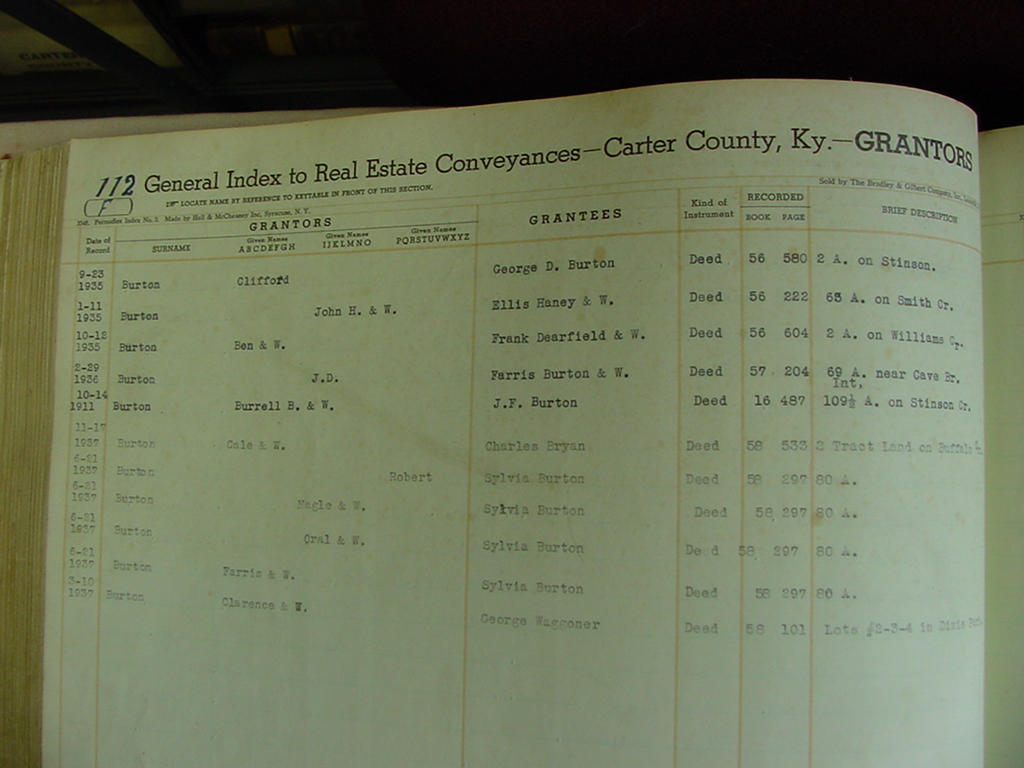 CARTER
112 General Index to Real Estate Conveyances—Carter County, Ky.—GRANTORS
F
LOCATE NAME BY REFERENCE TO KEYTABLE IN FRONT OF THIS SECTION.
Sold by The Bradley & Gilbert Company, Inc.,
Index No. 2. Made by Hall & McChesney Inc, Syracuse, N. Y.
Date of Record GRANTORS GRANTEES Kind of Instrument RECORDED BRIEF DESCRIPTION
SURNAME Given Names ABCDEFGH Given Names IJKLMNO Given Names PQRSTUVWXYZ BOOK PAGE
9-23 1935 Burton Clifford George D. Burton Deed 56 580 2 A. on Stinson.
1-11 1935 Burton John H. & W. Ellis Haney & W. Deed 56 222 65 A. on Smith Cr.
10-12 1935 Burton Ben & W. Frank Dearfield & W. Deed 56 604 2 A. on Williams Cr.
2-29 1936 Burton J.D. Farris Burton & W. Deed 57 204 69 A. near Cave Br.
10-14 1911 Burton Burrell B. & W. J.F. Burton Deed 16 487 Int. 109½ A. on Stinson Cr.
11-17 1937 Burton Cale & W. Charles Bryan Deed 58 533 2 Tract Land on Buffalo
6-21 1937 Burton Robert Sylvia Burton Deed 58 297 80 A.
6-21 1937 Burton Nagle & W. Sylvia Burton Deed 58 297 80 A.
6-21 1937 Burton Oral & W. Sylvia Burton Deed 58 297 80 A.
6-21 1937 Burton Farris & W. Sylvia Burton Deed 58 297 80 A.
3-10 1937 Burton Clarence & W. George Waggoner Deed 58 101 Lots #2-3-4 in Dixie